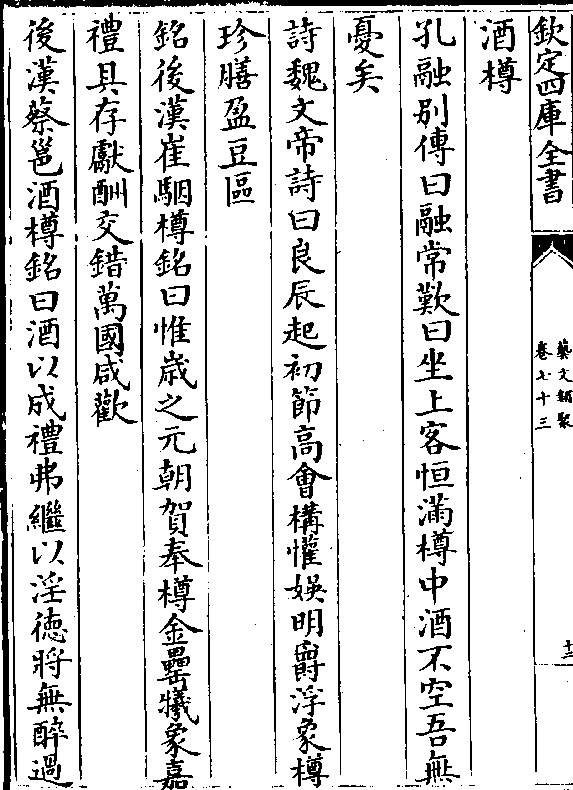 欽定四庫全書
藝文類聚
卷七十三
十二
酒樽
孔融别傳曰融常歎曰坐上客恒滿樽中酒不空吾無
憂矣
詩魏文帝詩曰良辰起初節髙會構懽娛明爵浮象樽
珍膳盈豆區
銘後漢崔駰樽銘曰惟嵗之元朝賀奉樽金罍犧象嘉
禮具存獻酬交錯萬國咸歡
後漢蔡邕酒樽銘曰酒以成禮弗繼以淫徳將無醉過